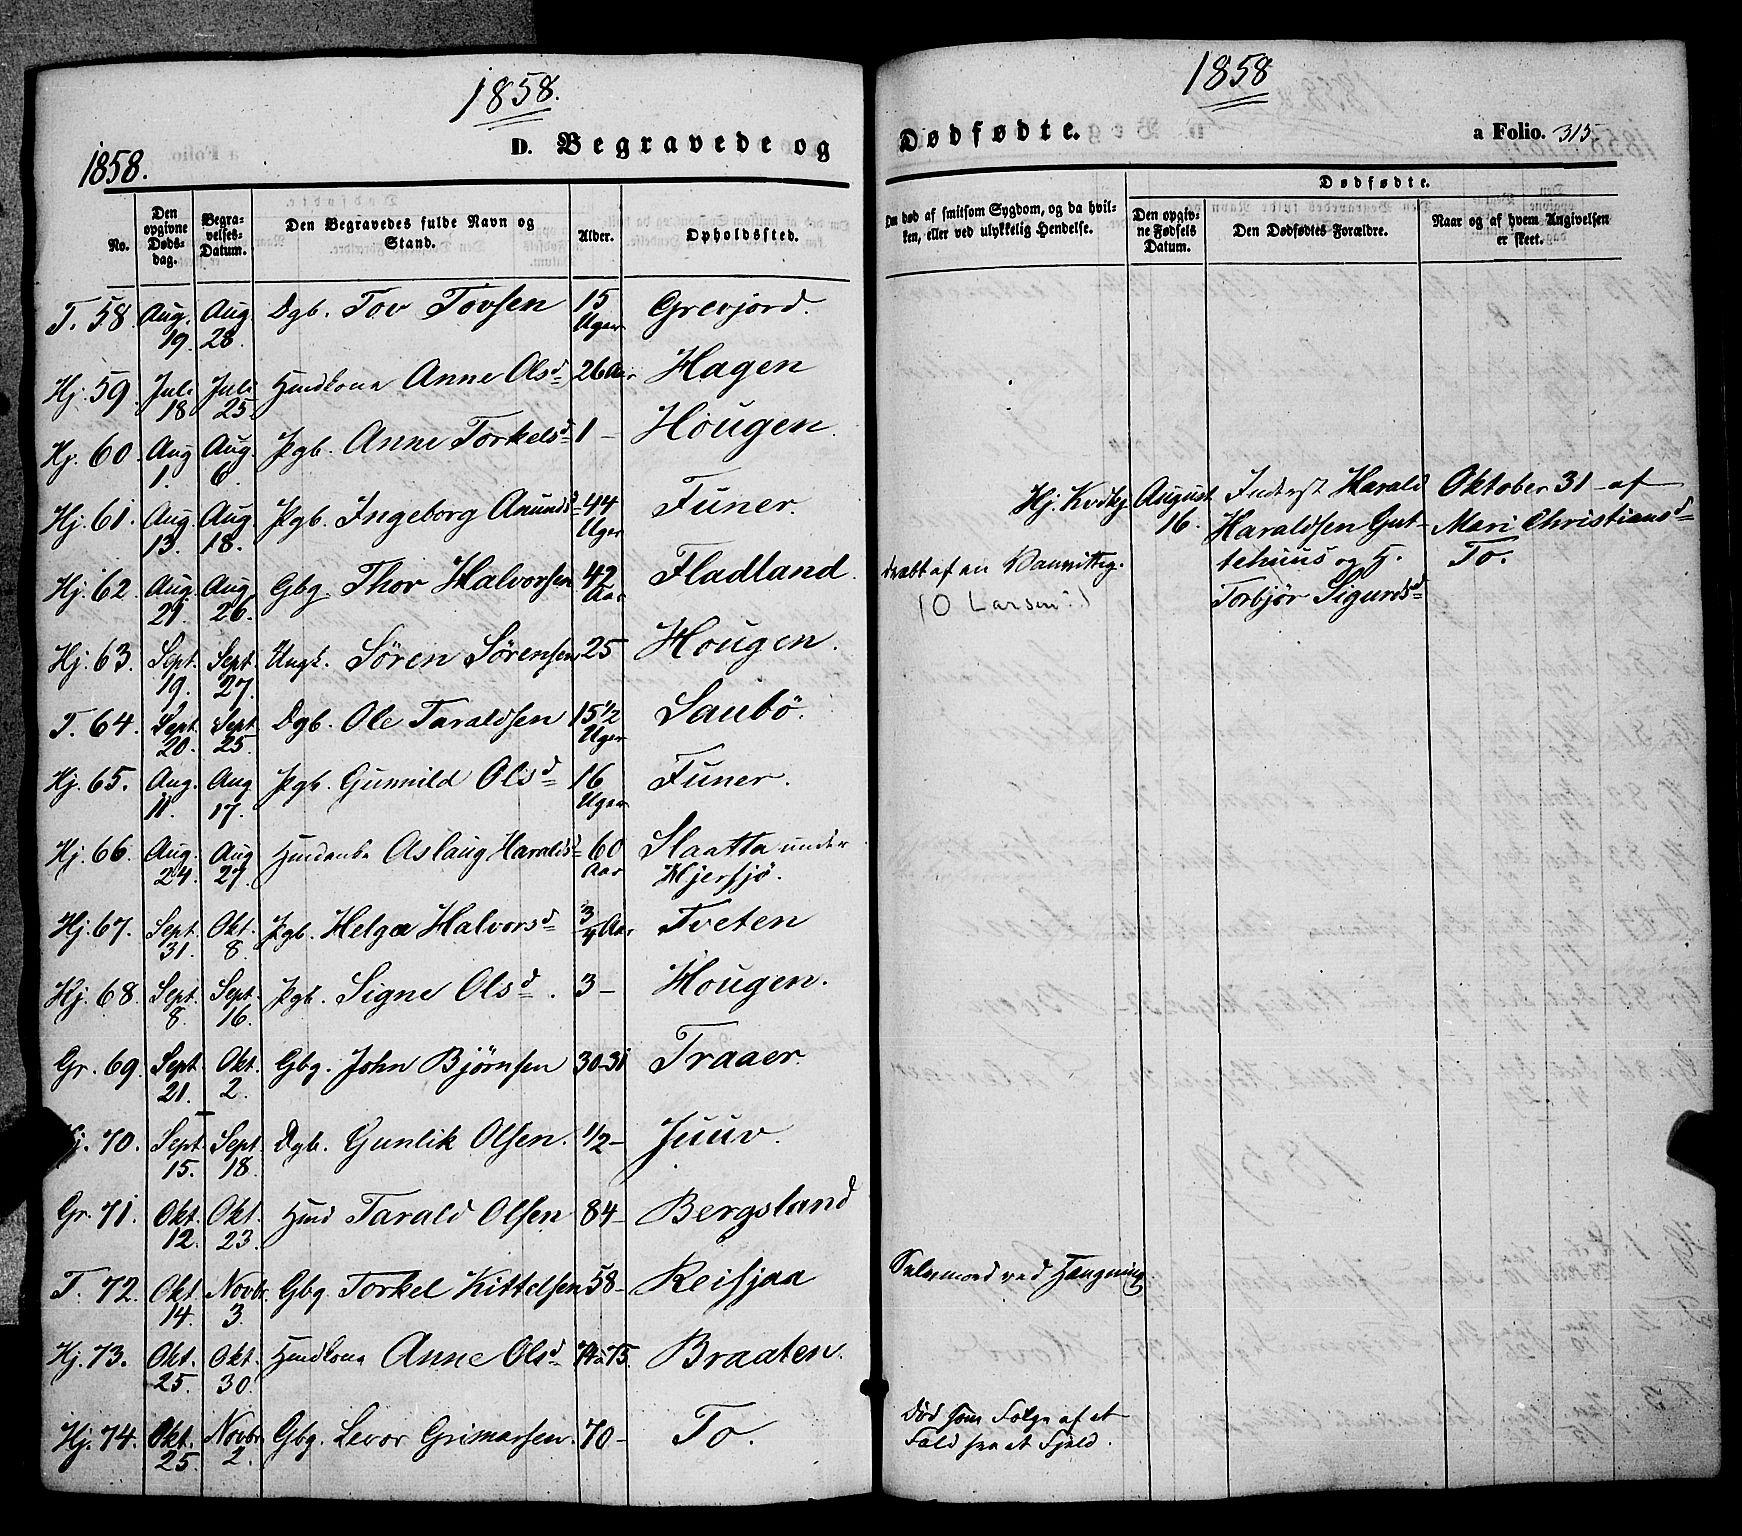 1858.
1858.
D. Begravede og
No.
Den opgivne Dødsdag.
Begravelses-Datum.
Den Begravedes fulde Navn og Stand.
Alder.
Opholdssted.
T. 58. Aug. 19. Aug 28. Dgb. Tov Tovsen 15 Uger Grevjord.
Hj. 59. Juli 18 Juli 25. Huuskona Anne Olsd 26 Aar Hagen
Hj. 60. Aug 1. Aug. 6. Pgb. Anne Torkelsd 1 – Hougen.
Hj. 61. Aug. 13. Aug. 18. Pgb. Ingeborg Anundsd 44 Uger Funer.
Hj. 62. Aug. 21. Aug. 26. Gbg. Thor Halvorsen 42 Aar Fladland.
Hj. 63. Sept. 19. Sept. 27. Ungk. Sören Sörensen 25 Hougen.
T. 64. Sept. 20. Sept. 25. Dgb. Ole Taraldsen 15 1/2 Uger Saubö.
Hj. 65. Aug. 11. Aug 17. Pgb. Gunnild Olsd 16 Uger Funer.
Hj. 66. Aug. 24. Aug 27. Aslaug Haraldsd 60 Aar Slaatta under Hjersjö.
Hj. 67. Sept. 31. Okt. 8. Pgb. Helga Halvorsd 3/4 Aar Tveten
Hj. 68. Sept. 8. Sept. 16. Pgb. Signe Olsd. 3 – Hougen.
Gr. 69. Sept. 21. Okt. 2. Gbg. John Bjørnsen 30-31 Traaer.
Hj. 70. Sept. 15. Sept. 18. Dgb. Gunlik Olsen. 1/2 – Juuv.
Gr. 71. Okt. 12. Okt. 23. Tarald Olsen 84 – Bergsland
T. 72. Okt. 14. Novbr. 3. Gbg Torkel Kittelsen 58 – Reisjaa
Hj. 73. Okt. 25. Okt. 30. Huuskona Anne Olsd 74 a 75. Braaten.
Hj. 74. Okt. 25. Novbr. 2. Gbg. Levor Grimarsen. 70 – To.
1858
Dødfødte.
a Folio. 315
Om død af smitsom Sygdom, og da hvilken, eller ved ulykkelig Hendelse.
Dødfødte.
Den opgivne Fødsels Datum.
Den Dødfødtes Forældre.
Naar og af hvem Angivelsen er skeet.
Hj. August 16. Inderst Harald Haraldsen Guttehuus og H. Torbjør Sigurdsd
Oktober 31 – af Mari Christiansd To.
dræbt af en Vanvittig.
(O Larsen?)
Selvmord ved Hængning
Död som Følge af et
Fald fra et Fjeld.